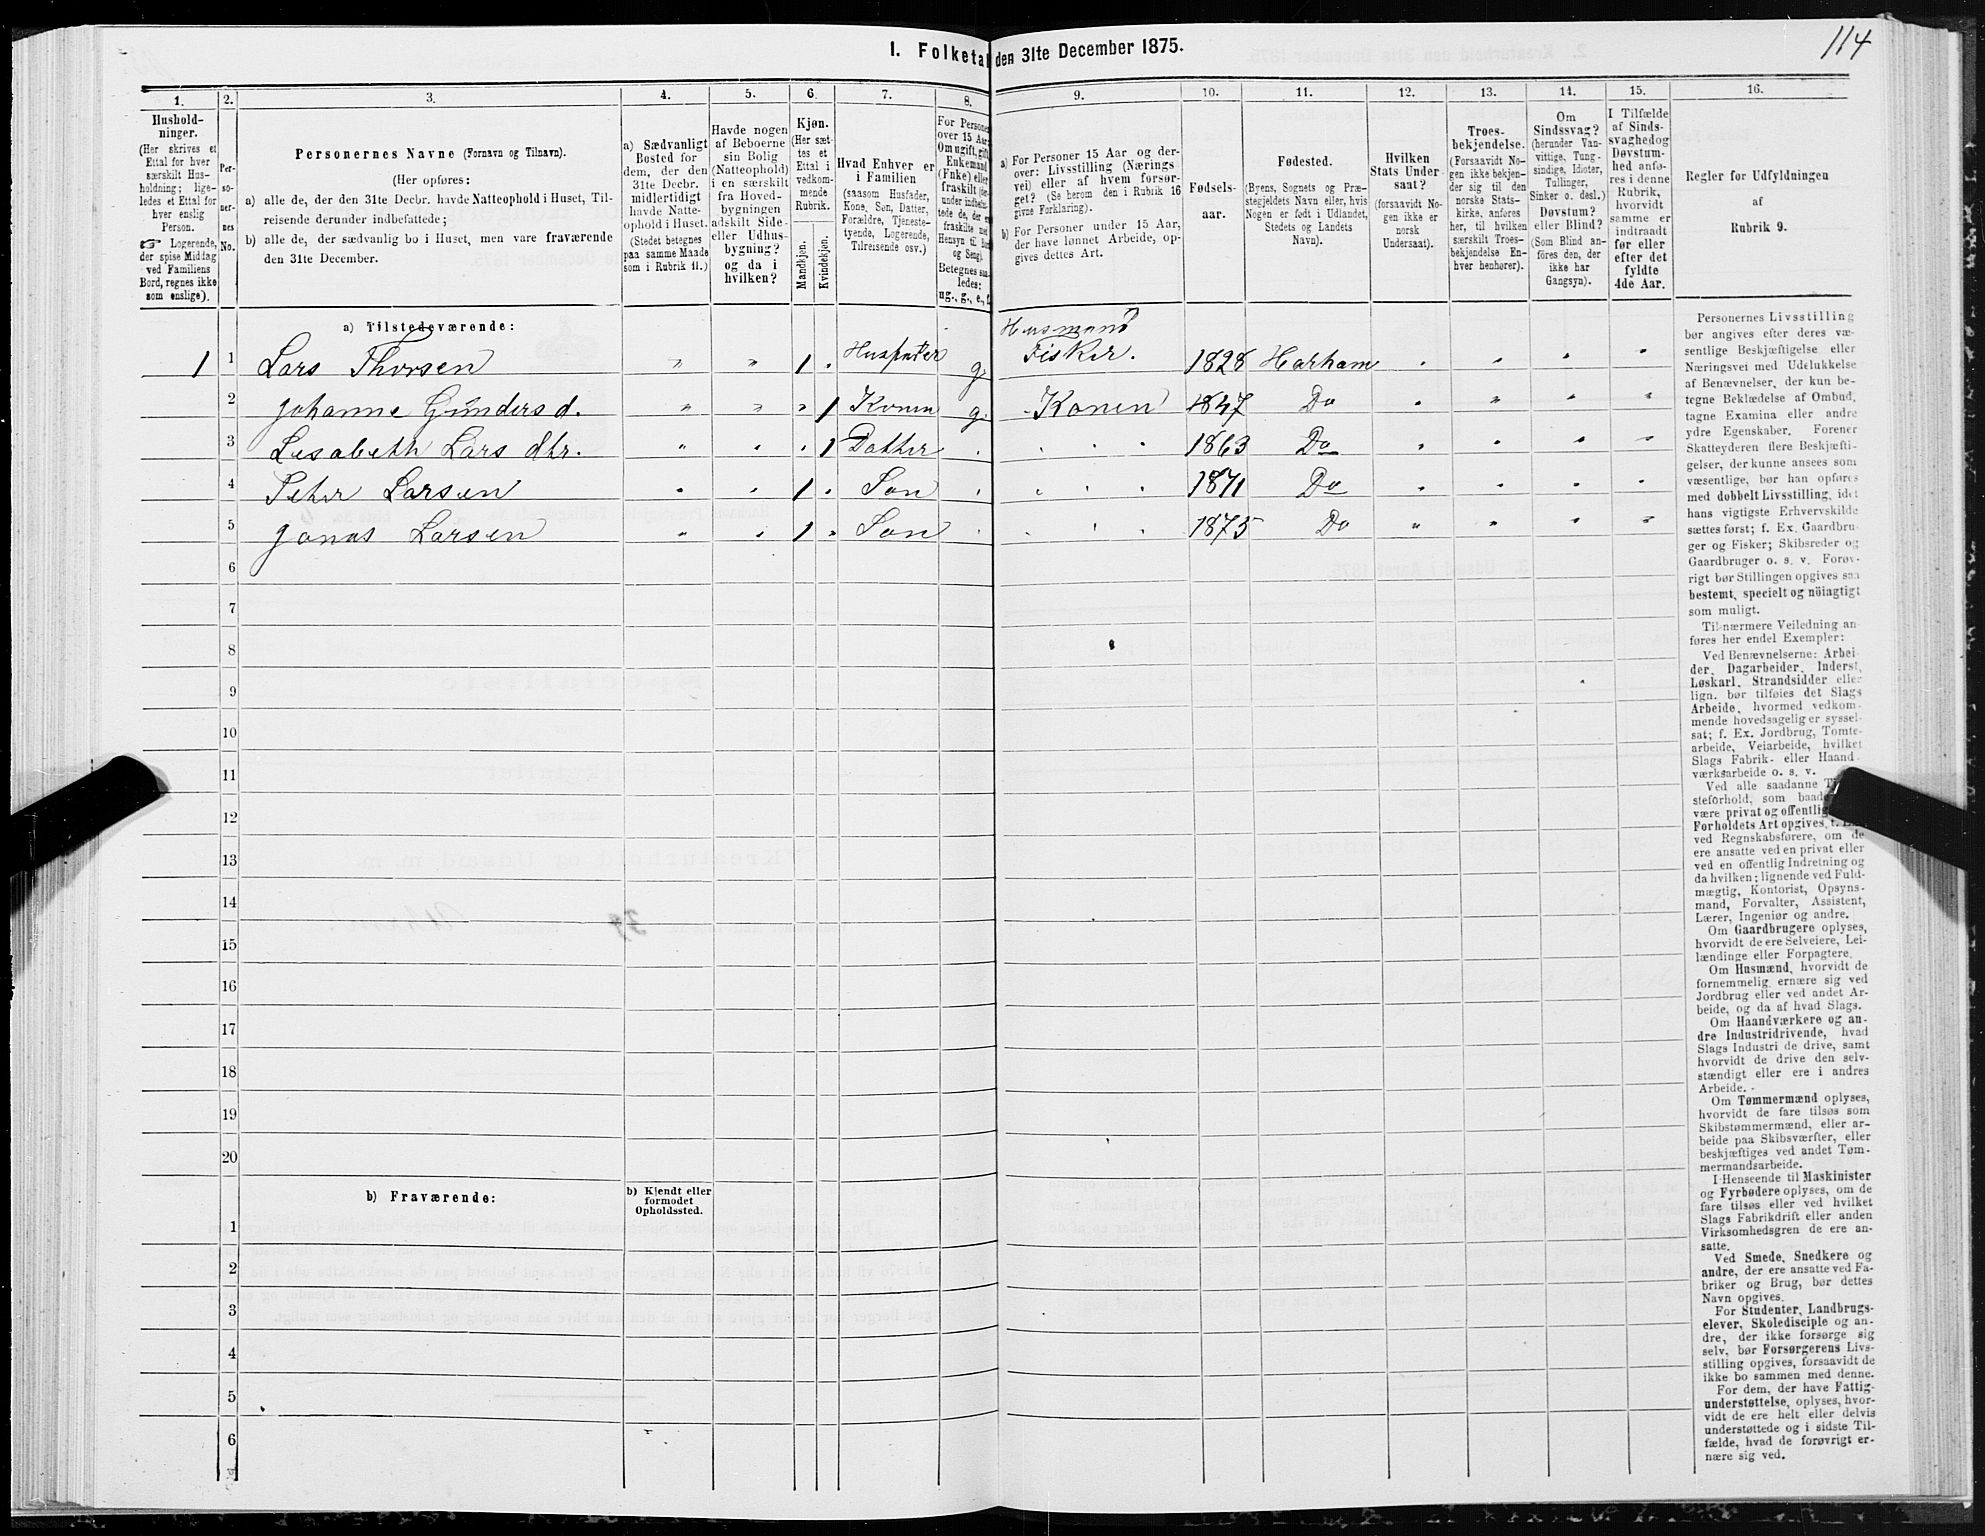 114
I. Folketal den 31te December 1875.
1.
Hushold-
ninger.
(Her skrives et
Ettal for hver
særskilt Hus-
holdning; lige-
ledes et Ettal for
hver enslig
Person.
☞ Logerende,
der spise Middag
ved Familiens
Bord, regnes ikke
som enslige).
2.
Per-
so-
ner-
nes
No.
3.
Personernes Navne (Fornavn og Tilnavn).
(Her opføres:
a) alle de, der den 31te Decbr. havde Natteophold i Huset, Til-
reisende derunder indbefattede;
b) alle de, der sædvanlig bo i Huset, men vare fraværende
den 31te December.
4.
a) Sædvanligt
Bosted for
dem, der den
31te Decbr.
midlertidigt
havde Natte-
ophold i Huset.
(Stedet betegnes
paa samme Maade
som i Rubrik 11.)
5.
Havde nogen
af Beboerne
sin Bolig
(Natteophold)
i en særskilt
fra Hoved-
bygningen
adskilt Side-
eller Udhus-
bygning?
og da i
hvilken?
6.
Kjøn.
(Her sæt-
tes et
Ettal i
vedkom-
mende
Rubrik.
Mandkjøn.
Kvindekjøn.
7.
Hvad Enhver er
i Familien
(saasom Husfader,
Kone, Søn, Datter,
Forældre, Tjeneste-
tyende, Logerende,
Tilreisende osv.)
8.
For Personer
over 15 Aar:
Om ugift, gift,
Enkemand
(Enke) eller
fraskilt
Hensyn til Bord
og Seng).
Betegnes saa-
ledes:
ug., g., e.,
9.
a) For Personer 15 Aar og der-
over: Livsstilling (Nærings-
vei) eller af hvem forsør-
get? (Se herom den i Rubrik 16
givne Forklaring).
b) For Personer under 15 Aar,
der have lønnet Arbeide, op-
gives dettes Art.
10.
Fødsels-
aar.
11.
Fødested.
(Byens, Sognets og Præ-
stegjeldets Navn eller, hvis
Nogen er født i Udlandet,
Stedets og Landets
Navn).
12.
Hvilken
Stats Under-
saat?
(forsaavidt No-
gen ikke er
norsk
Undersaat).
13.
Troes-
bekjendelse.
(Forsaavidt No-
gen ikke bekjen-
der sig til den
norske Stats-
kirke, anføres
her, til hvilken
særskilt Troes-
bekjendelse En-
hver henhører).
14.
Om
Sindssvag?
(herunder Van-
vittige, Tung-
sindige, Idioter,
Tullinger,
Sinker o. desl.)
Døvstum?
eller Blind?
(Som Blind an-
føres den, der
ikke har
Gangsyn).
15.
I Tilfælde
af Sinds-
svaghed og
Døvstum-
hed anfø-
res i denne
Rubrik,
hvorvidt
samme er
indtraadt
før eller
efter det
fyldte
4de Aar.
16.
Regler for Udfyldningen
af
Rubrik 9.
a) Tilstedeværende:
Husmand
1 1 Lars Thorsen " " 1 . Husfader g. Fisker. 1828 Harham . " " "
2 Johanne Gunders d. " " " 1 Konen g. Konen 1847 Do " " " "
3 Lesabeth Lars dtr. " " " 1 Datter . . . . 1863 Do " " " "
4 Peter Larsen " " 1 . Søn . . . . 1871 Do " " " "
5 Jonas Larsen " " 1 " Søn . . . . 1875 Do " " " "
6
7
8
9
10
11
12
13
14
15
16
17
18
19
20
b) Fraværende:
b) Kjendt eller
formodet
Opholdssted.
1
2
3
4
5
6
Personernes Livsstilling
bør angives efter deres væ-
sentlige Beskjæftigelse eller
Næringsvei med Udelukkelse
af Benævnelser, der kun be-
tegne Beklædelse af Ombud,
tagne Examina eller andre
ydre Egenskaber. Forener
Skatteyderen flere Beskjæfti-
gelser, der kunne ansees som
væsentlige, bør han opføres
med dobbelt Livsstilling, idet
hans vigtigste Erhvervskilde
sættes først; f. Ex. Gaardbru-
ger og Fisker; Skibsreder og
Gaardbruger o. s. v. Forøv-
rigt bør Stillingen opgives saa
bestemt, specielt og nöiagtigt
som muligt.
Til nærmere Veiledning an-
føres her endel Exempler:
Ved Benævnelserne: Arbei-
der, Dagarbeider, Inderst,
Løskarl, Strandsidder eller
lign. bør tilføies det Slags
Arbeide, hvormed vedkom-
mende hovedsagelig er syssel-
sat; f. Ex. Jordbrug, Tomte-
arbeide, Veiarbeide, hvilket
Slags Fabrik- eller Haand-
værksarbeide o. s. v.
Ved alle saadanne
steforhold, som baade
være privat og offentlig,
Forholdets Art opgives, f.
ved Regnskabsførere, om de
ere ansatte ved en privat eller
ved en offentlig Indretning og
da hvilken; lignende ved Fuld-
mægtig, Kontorist, Opsyns-
mand, Forvalter, Assistent,
Lærer, Ingeniør og andre.
Om Gaardbrugere oplyses,
hvorvidt de ere Selveiere, Lei-
lændinge eller Forpagtere.
Om Husmænd, hvorvidt de
fornemmelig ernære sig ved
Jordbrug eller ved andet Ar-
beide, og da af hvad Slags.
Om Haandværkere og an-
dre Industridrivende, hvad
Slags Industri de drive, samt
hvorvidt de drive den selv-
stændigt eller ere i andres
Arbeide.
Om Tømmermænd oplyses,
hvorvidt de fare tilsøs som
Skibstømmermænd, eller ar-
beide paa Skibsværfter, eller
beskjæftiges ved andet Tøm-
mermandsarbeide.
I Henseende til Maskinister
og Fyrbødere oplyses, om de
fare tilsøs eller ved hvilket
Slags Fabrikdrift eller anden
Virksomhedsgren de ere an-
satte.
Ved Smede, Snedkere og
andre, der ere ansatte ved Fa-
briker og Brug, bør dettes
Navn opgives.
For Studenter, Landbrugs-
elever, Skoledisciple og an-
dre, der ikke forsørge sig
selv, bør Forsørgerens Livs-
stilling opgives, forsaavidt de
ikke bo sammen med denne.
For dem, der have Fattig-
understøttelse, oplyses, hvor-
vidt de ere helt eller delvis
understøttede og i sidste Til-
fælde, hvad de forøvrigt er-
nære sig ved.